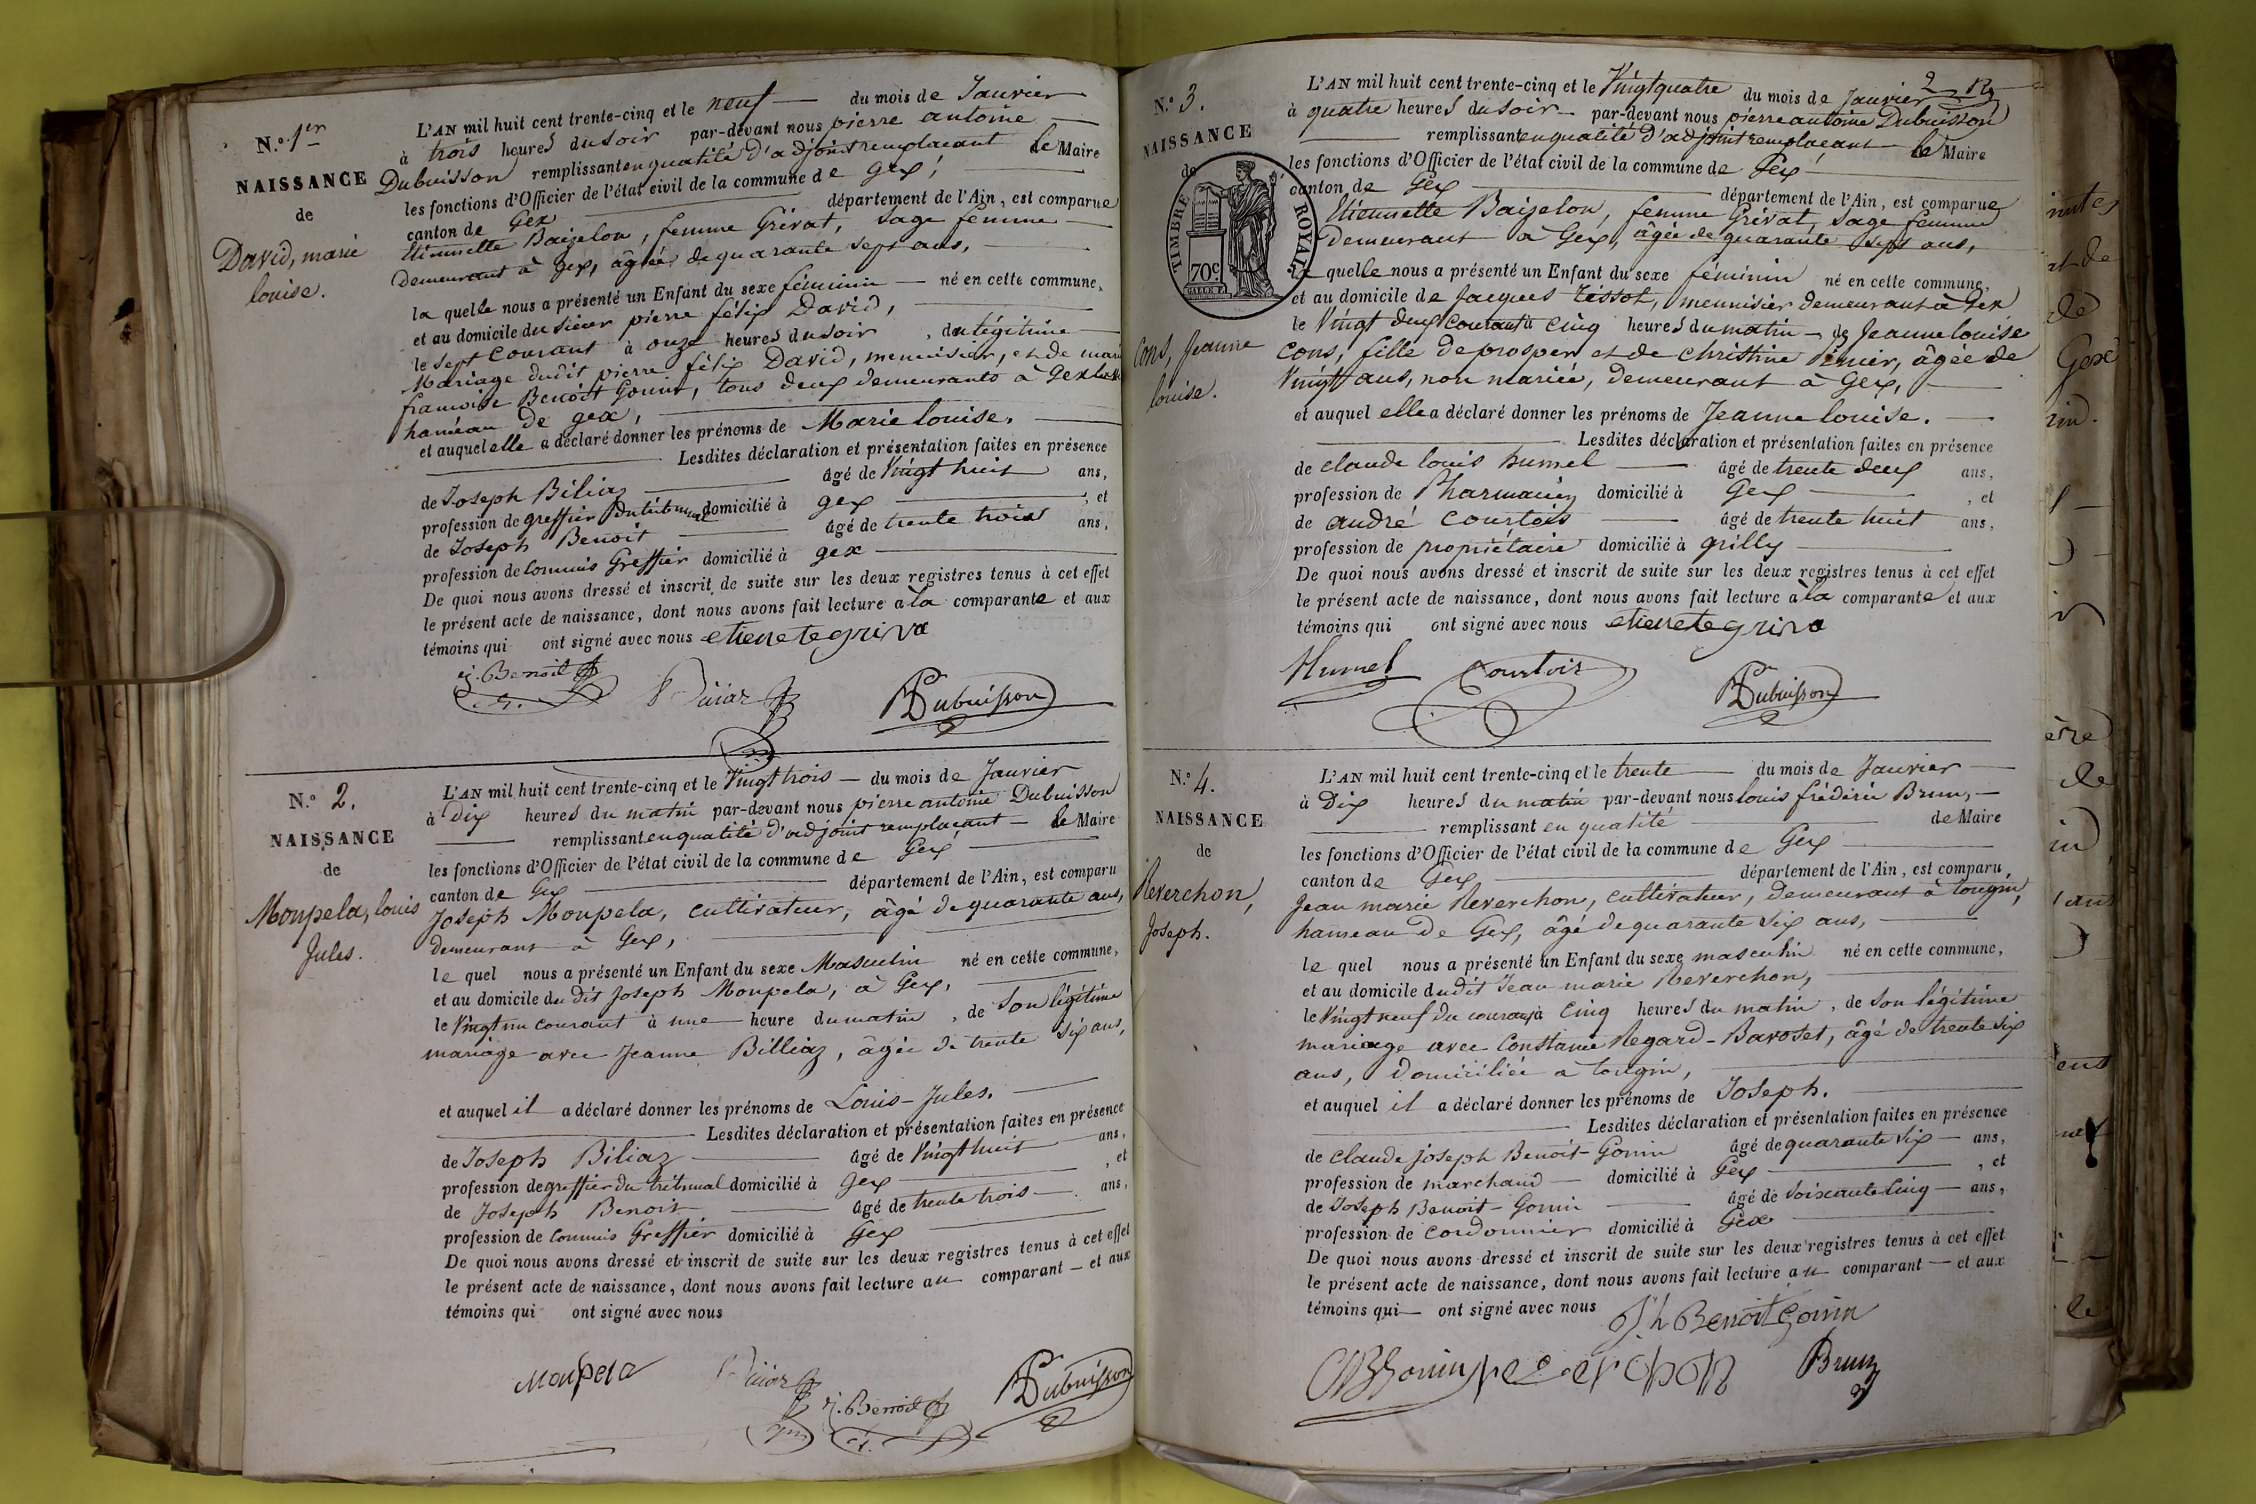 N.º 1er
NAISSANCE
de
David, marie
louise.
L'AN mil huit cent trente-cinq et le neuf du mois de Janvier
à trois heures du soir par-devant nous pierre antoine
Dubuisson remplissant en qualité d'adjoint remplaçant le Maire
les fonctions d'Officier de l'état civil de la commune de gex,
canton de Gex département de l'Ain, est comparue
Etiennette Baizelon, femme Grivat, sage femme
demeurant à gex, âgée de quarante sept ans,
la quelle nous a présenté un Enfant du sexe féminin né en cette commune,
et au domicile du sieur pierre félix David,
le sept courant à onze heures du soir, du légitime
Mariage dudit pierre félix David, menuisier, et de marie
francoise Benoit Gonin, tous deux demeurants à Gex
hameau de gex,
et auquel elle a déclaré donner les prénoms de Marie louise.
Lesdites déclaration et présentation faites en présence
de Joseph Biliaz âgé de Vingt huit ans,
profession de greffier du tribunal domicilié à gex, et
de Joseph Benoit âgé de trente trois ans,
profession de commis Greffier domicilié à gex
De quoi nous avons dressé et inscrit de suite sur les deux registres tenus à cet effet
le présent acte de naissance, dont nous avons fait lecture a la comparante et aux
témoins qui ont signé avec nous etienetegriva
j. Benoit
Dubuisson
N.º 2.
NAISSANCE
de
Monpela, louis
Jules.
L'AN mil huit cent trente-cinq et le Vingt trois du mois de Janvier
à Dix heures du matin par-devant nous pierre antoine Dubuisson
remplissant en qualité d'adjoint remplaçant le Maire
les fonctions d'Officier de l'état civil de la commune de Gex
canton de Gex département de l'Ain, est comparu
Joseph Monpela, cultivateur, âgé de quarante ans,
demeurant à Gex,
le quel nous a présenté un Enfant du sexe Masculin né en cette commune,
et au domicile du dit Joseph Monpela, à Gex,
le Vingt un courant à une heure du matin, de son légitime
mariage avec Jeanne Billiaz, âgée de trente six ans,
et auquel il a déclaré donner les prénoms de Louis-Jules.
Lesdites déclaration et présentation faites en présence
de Joseph Biliaz âgé de Vingt huit ans,
profession de greffier du tribunal domicilié à gex, et
de Joseph Benoit âgé de trente trois ans,
profession de commis Greffier domicilié à Gex
De quoi nous avons dressé et inscrit de suite sur les deux registres tenus à cet effet
le présent acte de naissance, dont nous avons fait lecture au comparant et aux
témoins qui ont signé avec nous
Monpela
j. Benoit
Dubuisson
N.º 3.
NAISSANCE
de
TIMBRE ROYAL
70c
Cons, Jeanne
louise.
2
L'AN mil huit cent trente-cinq et le Vingt quatre du mois de Janvier
à quatre heures du soir par-devant nous pierre antoine Dubuisson
remplissant en qualité d'adjoint remplaçant le Maire
les fonctions d'Officier de l'état civil de la commune de Gex
canton de Gex département de l'Ain, est comparue
Etiennette Baizelon, femme Grivat, sage femme
demeurant à Gex, âgée de quarante sept ans,
la quelle nous a présenté un Enfant du sexe féminin né en cette commune,
et au domicile de Jacques Tissot, menuisier demeurant à Gex
le Vingt deux courant à cinq heures du matin de Jeanne louise
Cons, fille de prosper et de christine, âgée de
Vingt ans, non mariée, demeurant à Gex,
et auquel elle a déclaré donner les prénoms de Jeanne louise.
Lesdites déclaration et présentation faites en présence
de claude louis humel âgé de trente deux ans,
profession de Pharmacien domicilié à Gex, et
de andré courtois âgé de trente huit ans,
profession de propriétaire domicilié à grilly
De quoi nous avons dressé et inscrit de suite sur les deux registres tenus à cet effet
le présent acte de naissance, dont nous avons fait lecture à la comparante et aux
témoins qui ont signé avec nous etienetegriva
Humel Courtois
Dubuisson
N.º 4.
NAISSANCE
de
Reverchon,
Joseph.
L'AN mil huit cent trente-cinq et le trente du mois de Janvier
à Dix heures du matin par-devant nous louis frédéric Brun,
remplissant en qualité de Maire
les fonctions d'Officier de l'état civil de la commune de Gex
canton de Gex département de l'Ain, est comparu,
Jean marie Reverchon, cultivateur, demeurant à tougin,
hameau de Gex, âgé de quarante six ans,
le quel nous a présenté un Enfant du sexe masculin né en cette commune,
et au domicile dudit Jean marie Reverchon,
le Vingt neuf du courant à cinq heures du matin, de son légitime
mariage avec Constance Regard-Baroset, âgé de trente six
ans, domiciliée a tougin,
et auquel il a déclaré donner les prénoms de Joseph.
Lesdites déclaration et présentation faites en présence
de claude joseph Benoit-Gonin âgé de quarante six ans,
profession de marchand domicilié à Gex, et
de Joseph Benoit-Gonin âgé de soixante cinq ans,
profession de cordonnier domicilié à Gex
De quoi nous avons dressé et inscrit de suite sur les deux registres tenus à cet effet
le présent acte de naissance, dont nous avons fait lecture au comparant et aux
témoins qui ont signé avec nous Jh Benoit Gonin
CJBGonin reverchon Brun